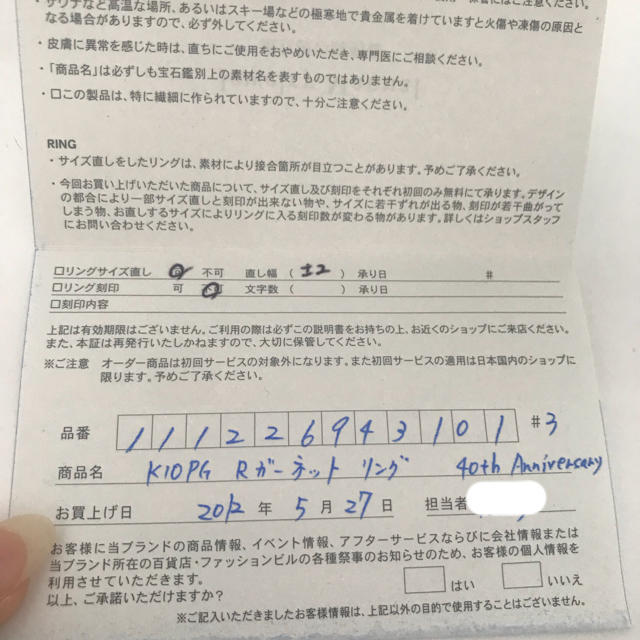 ・サウナなど高温な場所、あるいはスキー場などの極寒地で貴金属を着けていますと火傷や凍傷の原因と
なる場合がありますので、必ず外してください。
・皮膚に異常を感じた時は、直ちにご使用をおやめいただき、専門医にご相談ください。
・「商品名」は必ずしも宝石鑑別上の素材名を表すものではありません。
・□この製品は、特に繊細に作られていますので、十分ご注意ください。
RING
・サイズ直しをしたリングは、素材により接合箇所が目立つことがあります。予めご了承ください。
・今回お買い上げいただいた商品について、サイズ直し及び刻印をそれぞれ初回のみ無料にて承ります。デザイン
の都合により一部サイズ直しと刻印が出来ない物や、サイズに若干ずれが出る物、刻印が若干曲がって
しまう物、お直しするサイズによりリングに入る刻印数が変わる物があります。詳しくはショップスタッフ
にお問い合わせください。
□リングサイズ直し 可 不可 直し幅 ( ±2 ) 承り日 #
□リング刻印 可 不可 文字数 ( ) 承り日
□刻印内容
上記は有効期限はございません。ご利用の際は必ずこの説明書をお持ちの上、お近くのショップにご来店ください。
また、本証は再発行いたしかねますので、大切に保管してください。
※ご注意 オーダー商品は初回サービスの対象外になります。また初回サービスの適用は日本国内のショップに
限ります。予めご了承ください。
品番 111226943101 #3
商品名 K10PG Rガーネット リング 40th Anniversary
お買上げ日 2012 年 5 月 27 日 担当者
お客様に当ブランドの商品情報、イベント情報、アフターサービスならびに会社情報または
当ブランド所在の百貨店・ファッションビルの各種祭事のお知らせのため、お客様の個人情報を
利用させていただきます。
以上、ご承諾いただけますか? □ はい □ いいえ
※ご記入いただきましたお客様情報は、上記以外の目的で使用することはございません。